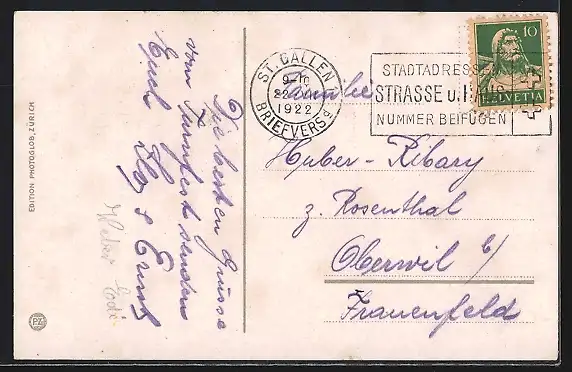 EDITION PHOTOGLOB, ZÜRICH
PZ
Die besten Grüsse
vom Turnfest senden
Euch
& Ernst
ST. GALLEN
9-10
1922
BRIEFVERS
STADTADRESSE
STRASSE u.
NUMMER BEIFÜGEN
10
HELVETIA
Familie
Huber-Ribary
z. Rosenthal
Oberwil b/
Frauenfeld